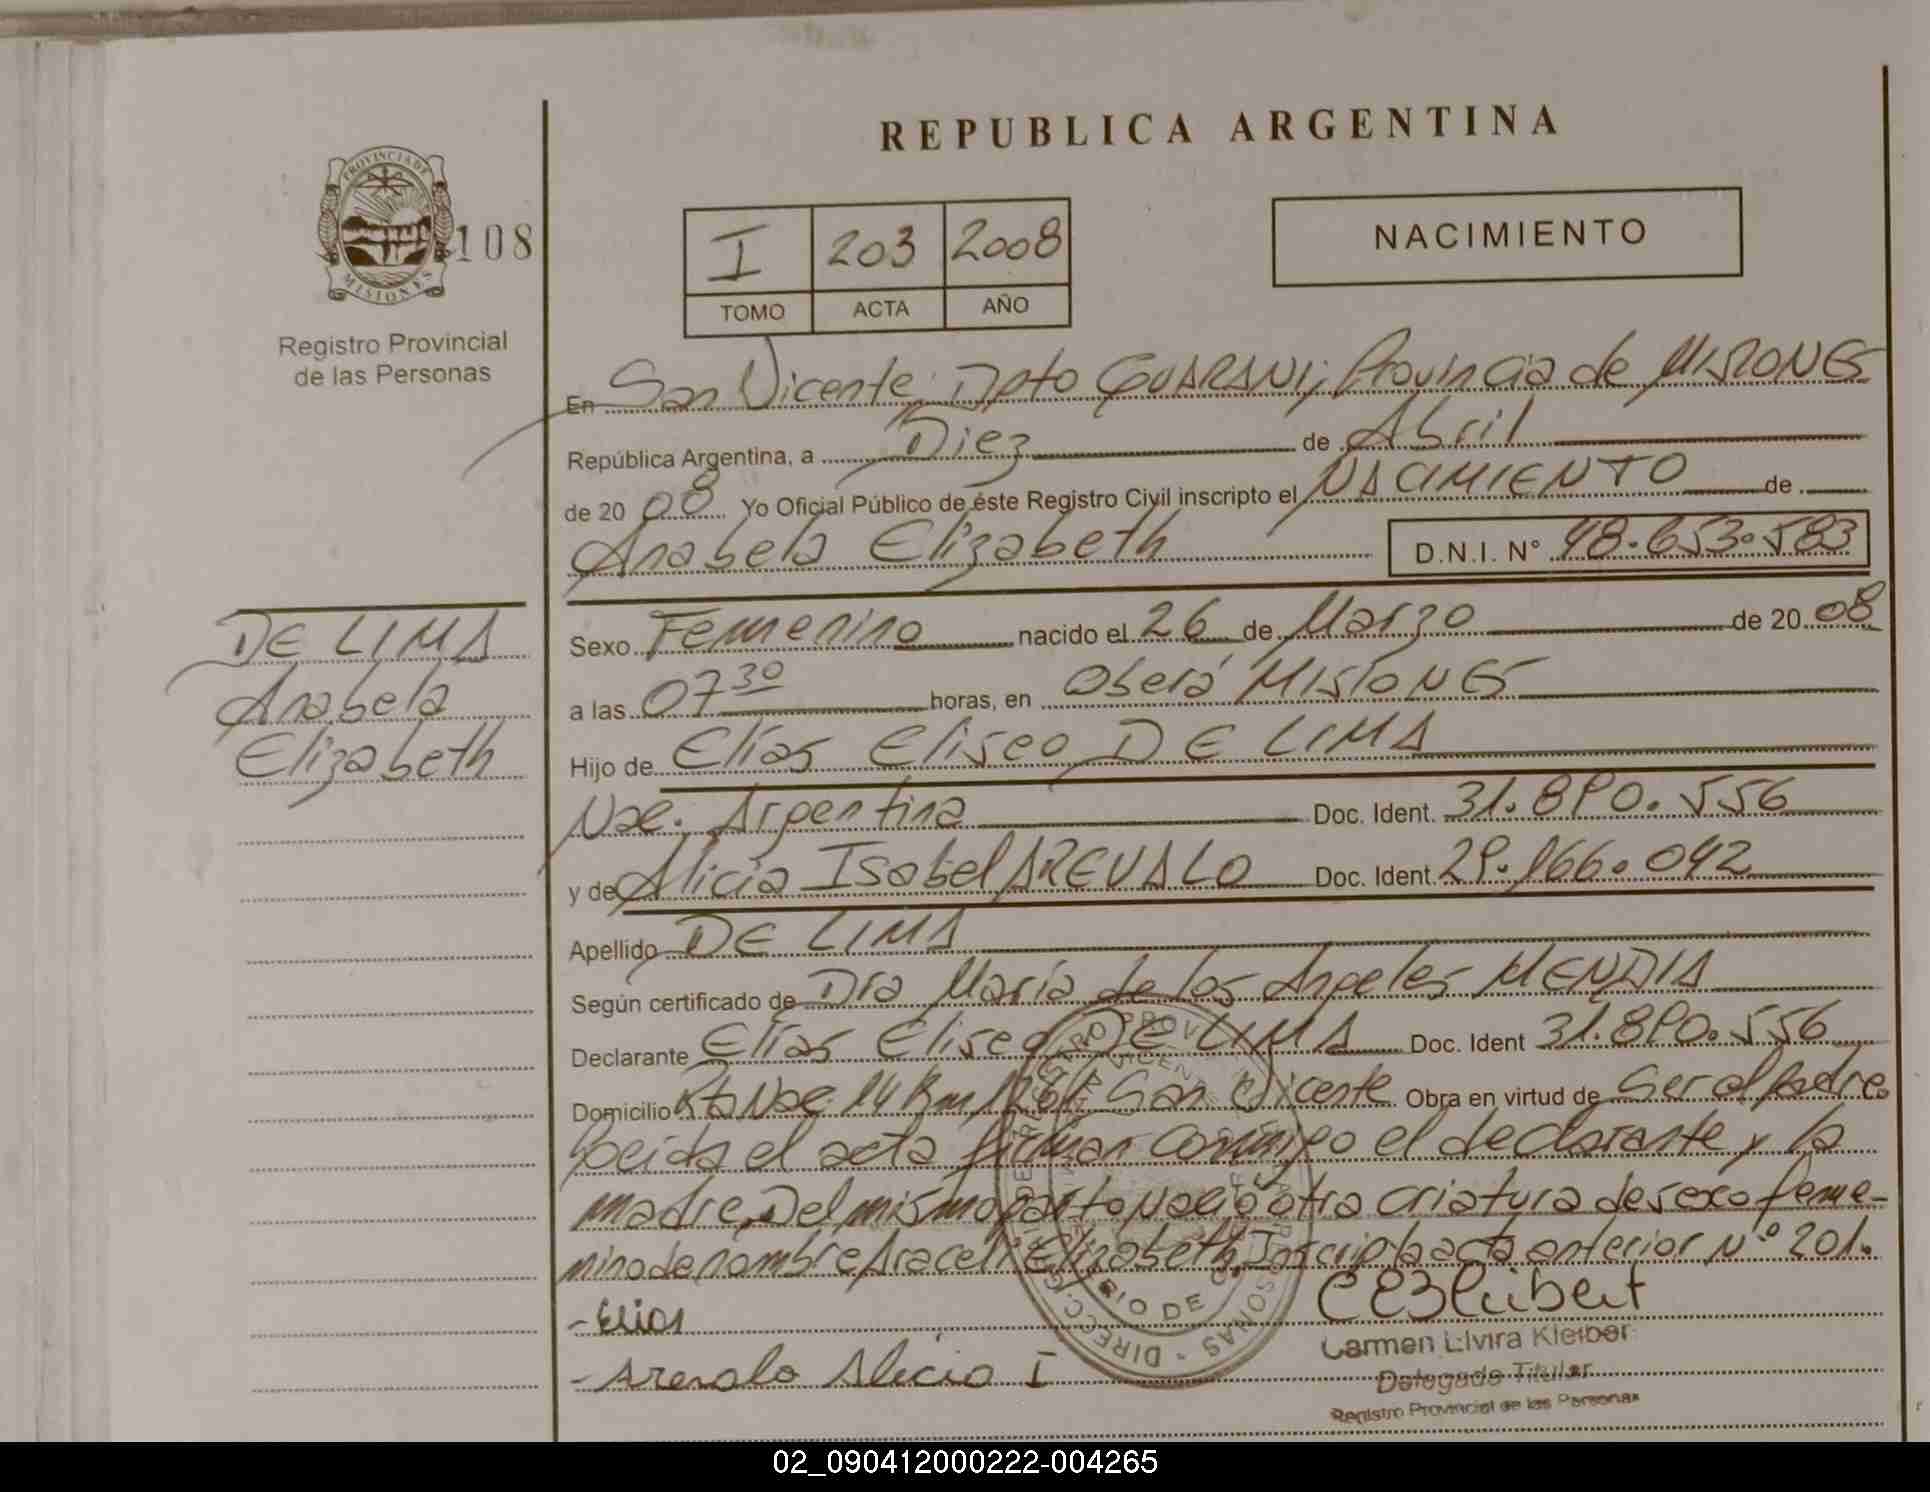 REPUBLICA ARGENTINA
PROVINCIA DE
MISIONES
108
Registro Provincial
de las Personas
I 203 2008
TOMO ACTA AÑO
NACIMIENTO
En San Vicente, Dpto GUARANI, Provincia de MISIONES
República Argentina, a Diez de Abril
de 2008 Yo Oficial Público de éste Registro Civil inscripto el NACIMIENTO de
Anabela Elizabeth D.N.I. Nº 48.653.583
DE LIMA
Anabela
Elizabeth
Sexo Femenino nacido el 26 de Marzo de 2008
a las 07 30 horas, en Oberá MISIONES
Hijo de Elías Eliseo DE LIMA
Nac. Argentina Doc. Ident. 31.890.556
y de Alicia Isabel AREVALO Doc. Ident. 29.166.042
Apellido DE LIMA
Según certificado de Dra María de los Angeles MENDIA
Declarante Elías Eliseo DE LIMA Doc. Ident 31.890.556
Domicilio Rta Nac. 14 Km San Vicente Obra en virtud de Ser el padre
Leida el acta firman conmigo el declarante y la
madre. Del mismo parto Nació otra criatura de sexo feme-
nino de nombre Araceli Elizabeth, Inscripta acta anterior Nº 201.
- Elias
- Arevalo Alicia I
Carmen Elvira Kleiber
Delegado Titular
Registro Provincial de las Personas
02_090412000222-004265